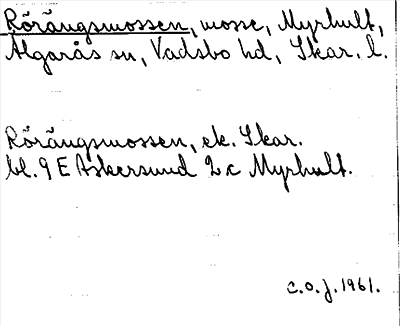 Rörängsmossen, mosse, Myrhult,
Älgarås sn, Vadsbo hd, Skar. l.
Rörängsmossen, ek. Skar.
bl. 9 E Askersund 2 c Myrhult.
C.O.J. 1961.